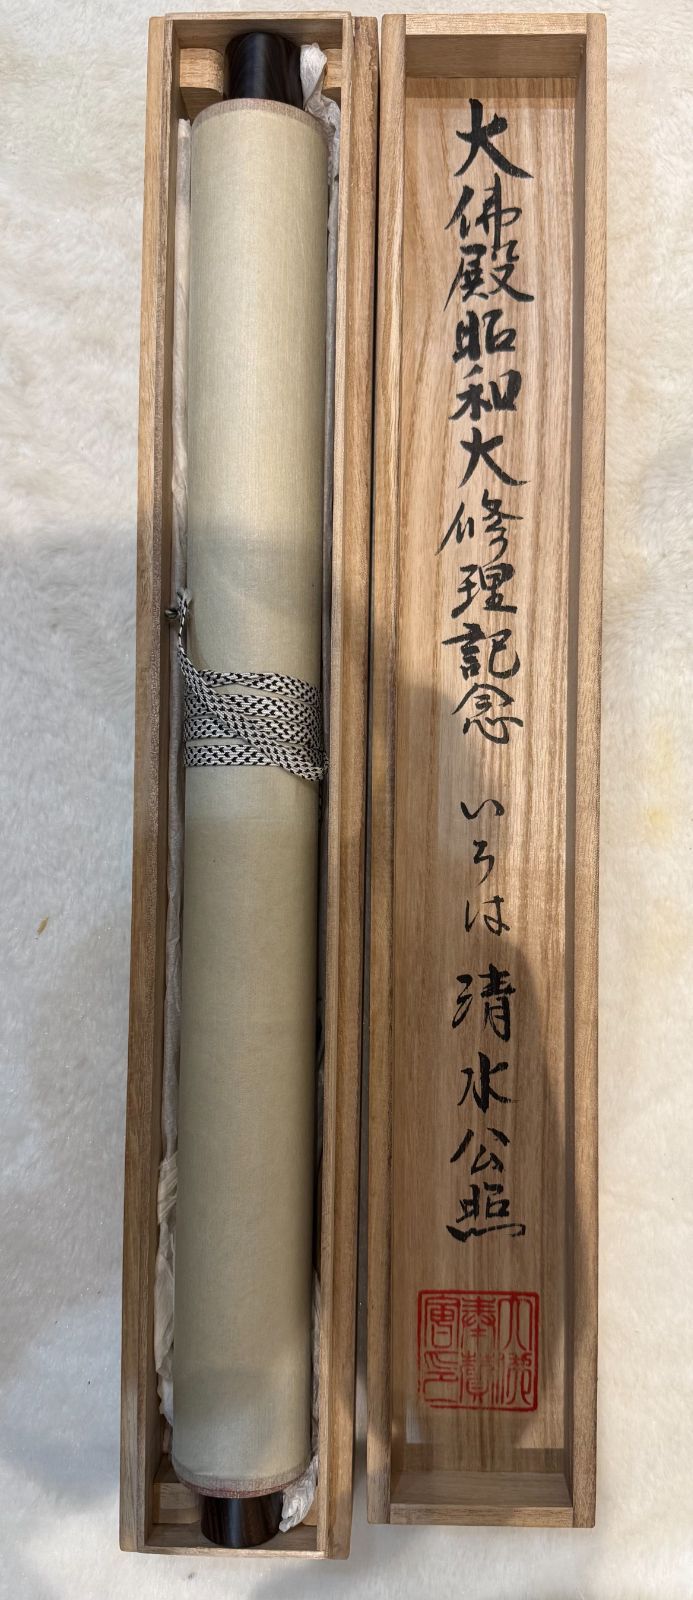 大佛殿昭和大修理記念 いろは 清水公照